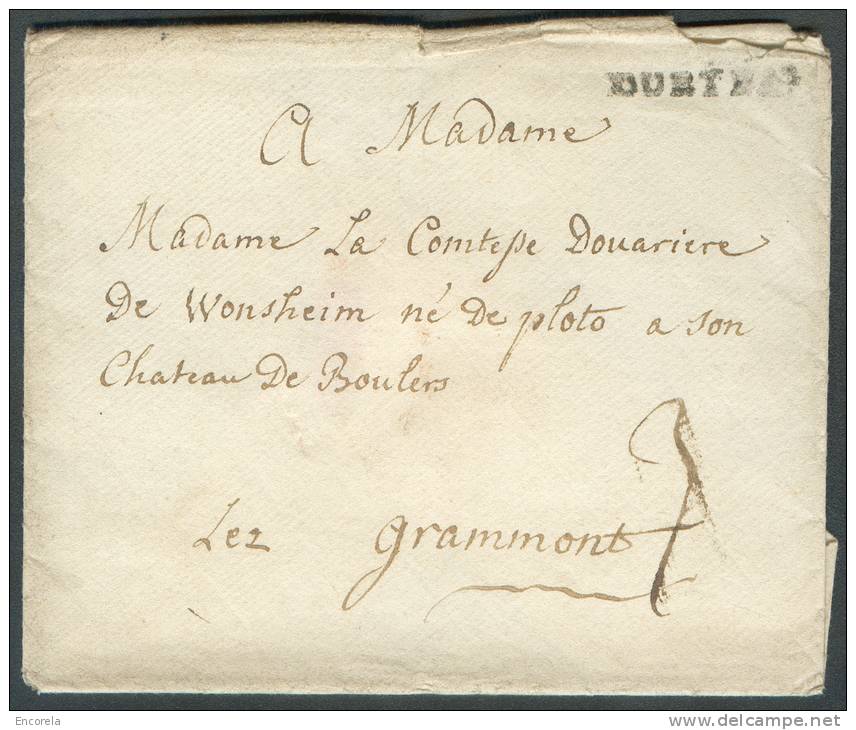 A Madame
Madame La Comtesse Douariere
De Wonsheim né De ploto a son
Chateau De Boulers
Lez grammont
7
Encorela
www.delcampe.net